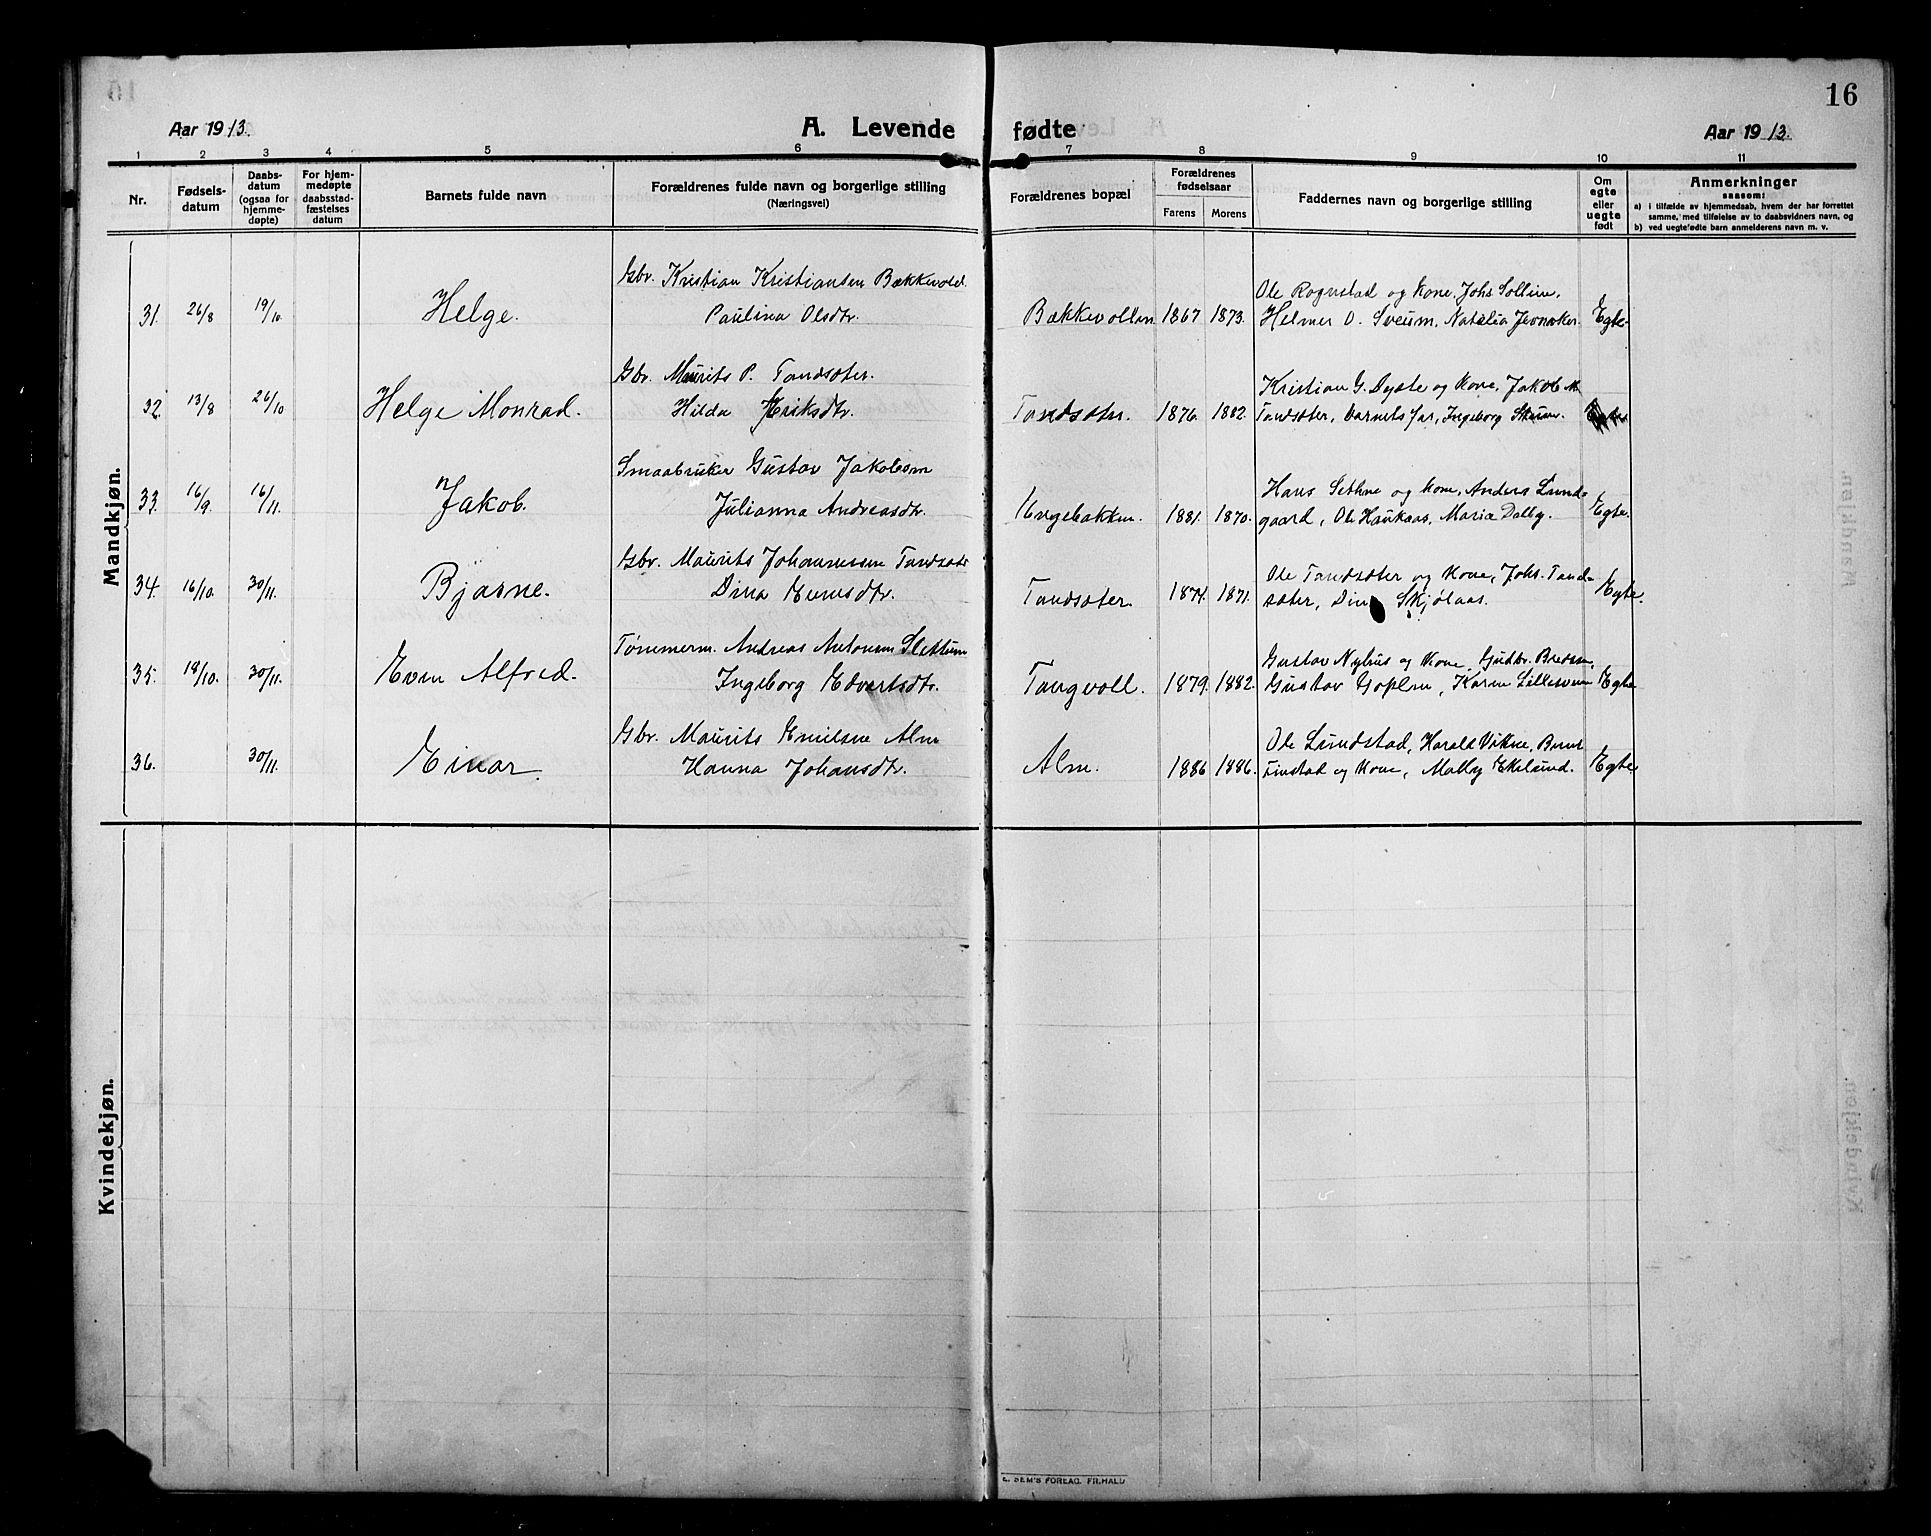 16
Aar 1913.
A. Levende fødte
Aar 1913.
1 2 3 4 5 6 7 8 9 10 11
Nr.
Fødsels-
datum
Daabs-
datum
(ogsaa for
hjemme-
døpte)
For hjem-
medøpte
daabsstad-
fæstelses
datum
Barnets fulde navn
Forældrenes fulde navn og borgerlige stilling
(Næringsvei)
Forældrenes bopæl
Forældrenes
fødselsaar
Farens Morens
Faddernes navn og borgerlige stilling
Om
egte
eller
uegte
født
Anmerkninger
saasom:
a) i tilfælde av hjemmedaab, hvem der har forrettet
samme, med tilføielse av to daabsvidners navn, og
b) ved uegtefødte barn anmelderens navn m. v.
Mandkjøn.
Gbr. Kristian Kristiansen Bækkevold. Ole Rognstad og Kone, Johs Sollien,
31. 26/8 19/10 Helge. Paulina Olsdtr. Bækkevollen 1867 1873. Helmer O. Sveum, Natalia Jevnaker. Egte
Gbr. Maurits P. Tandsæter. Kristian G. Dyste og Kone, Jakob M
32. 13/8 26/10 Helge Monrad. Hilda Eriksdtr. Tandsæter. 1876. 1882. Tandsæter, barnets far, Ingeborg
Smaabruker Gustav Jakobsen Hans Sethne og Kone, Anders Lund-
33. 16/9 16/11. Jakob. Julianna Andreasdtr. 1881. 1870. gaard, Ole Haukaas, Maria Dalby. Egte.
Gbr. Maurits Johannessen Tandsæter Ole Tandsæter og Kone, Johs. Tand-
34. 16/10. 30/11. Bjarne. Dina Evensdtr. Tandsæter. 1874. 1871. sæter, Dina Skjølaas. Egte.
Tømmerm. Andreas Antonsen Slettum Gustav Nyhus og Kone, Gudbr. Bredesen,
35. 18/10. 30/11. Even Alfred. Ingeborg Edvartsdtr. Tangvoll. 1879. 1882. Gustav Goplen, Karen Lillesveen Egte
Gbr. Maurits Emilsen Alm Ole Lundstad, Harald Vikne, Bernt
36. 30/11. Einar. Hanna Johansdtr. Alm. 1886 1886. Linstad og Kone, Mally Ekelund. Egte
Kvindekjøn.
E. SEM'S FORLAG. FR.HALD